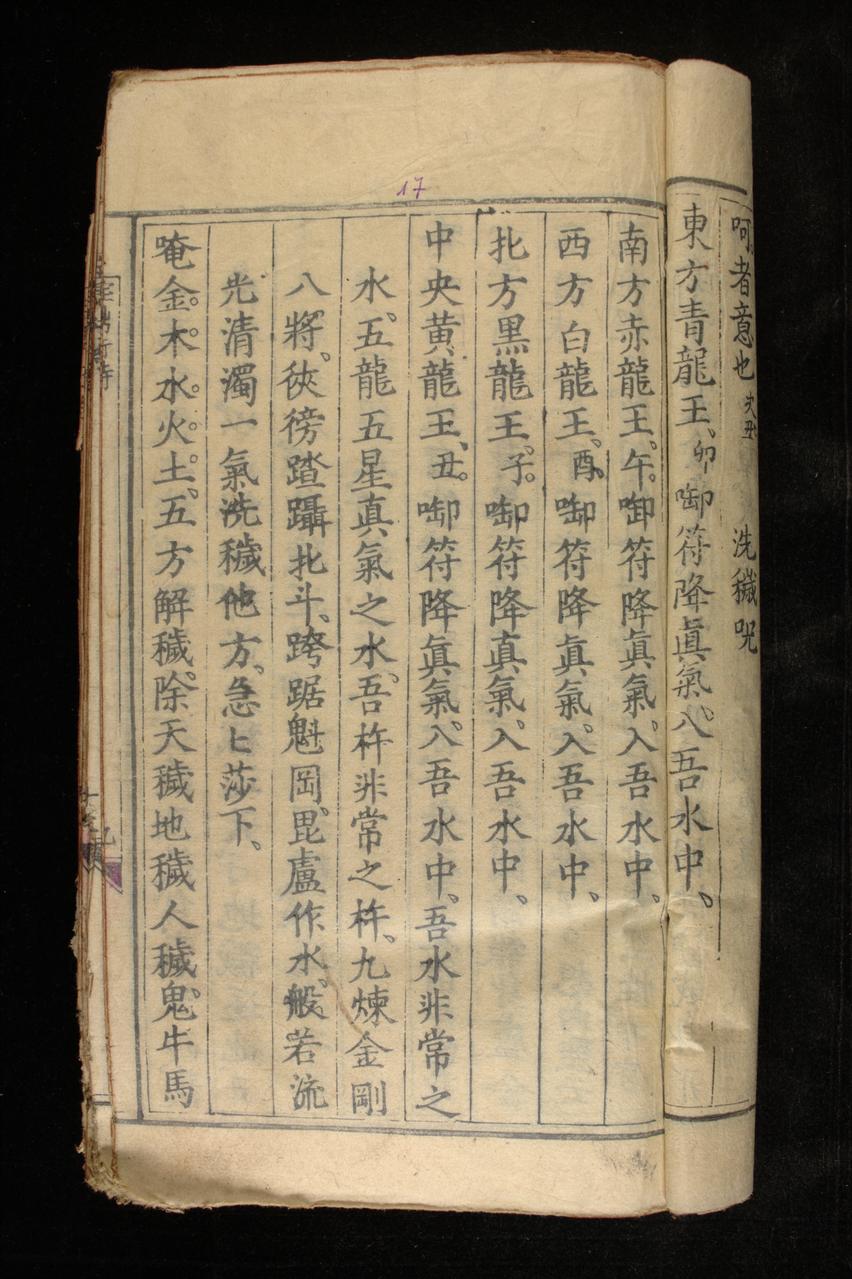 17
呵者意也 丈丑 洗穢呪
東方青龍王、卯啣符降眞氣、入吾水中、
南方赤龍王、午。啣符降眞氣、入吾水中、
西方白龍王、酉、啣符降眞氣、入吾水中、
北方黑龍王、子。啣符降眞氣、入吾水中、
中央黄龍王、丑。啣符降眞氣、入吾水中、吾水非常之
水、五龍五星真氣之水、吾杵非常之杵、九煉金剛
八將、俠徬踏躡北斗、跨踞魁岡、毘盧作水、般若流
光清濁一氣洗穢他方、急匕莎下、
唵金。木。水。火。土、五方解穢、除天穢地穢人穢鬼、牛馬